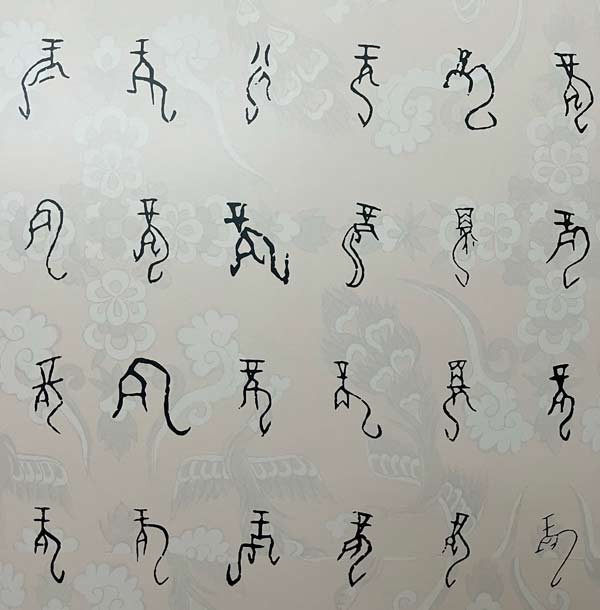 龍龍龍龍龍龍
龍龍龍龍龍龍
龍龍龍龍龍龍
龍龍龍龍龍龍